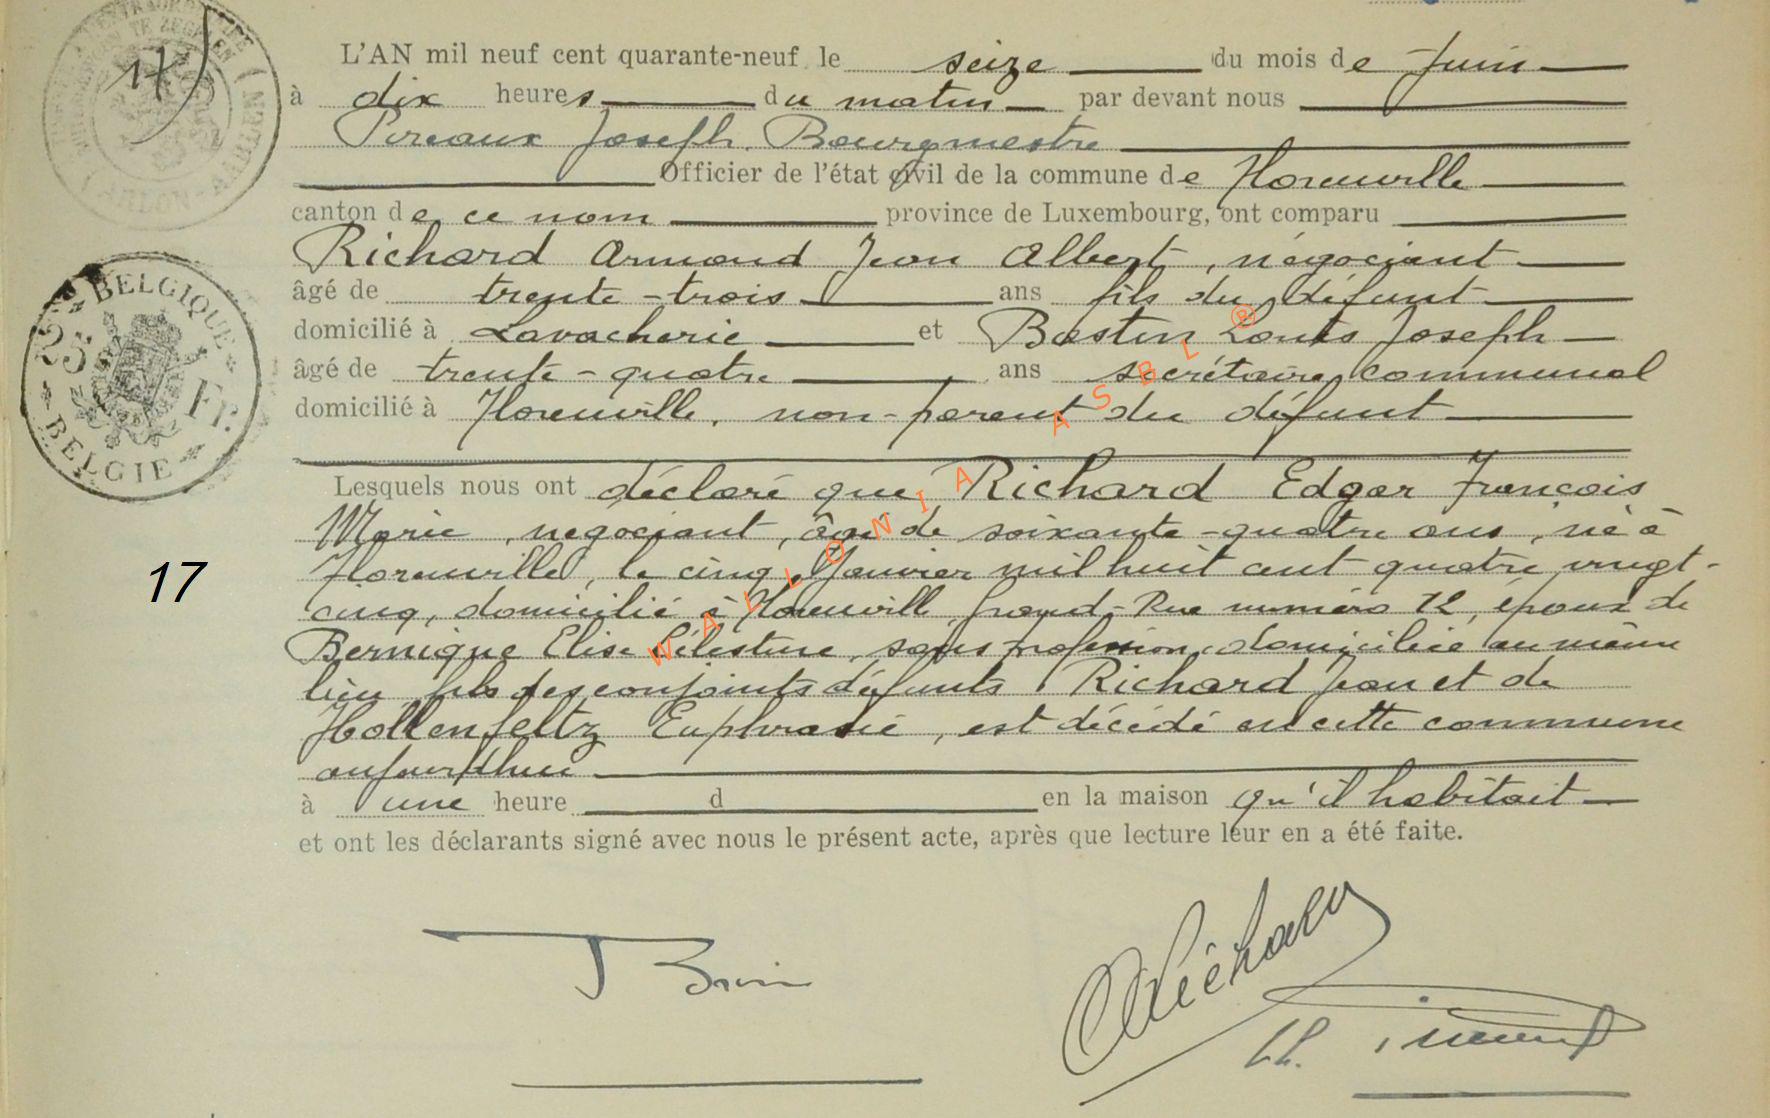 17
L'AN mil neuf cent quarante-neuf le seize du mois de Juin
à dix heures du matin par devant nous
Pireaux Joseph. Bourgmestre
Officier de l'état civil de la commune de Florenville
canton de ce nom province de Luxembourg, ont comparu
Richard Armand Jean Albert, négociant
âgé de trente-trois ans fils du défunt
domicilié à Lavacherie et Bastin Louis Joseph
âgé de trente-quatre ans secrétaire communal
domicilié à Florenville, non-parent du défunt
BELGIQUE
25 Fr.
BELGIE
Lesquels nous ont déclaré que Richard Edgar François
Marie, négociant, âgé de soixante-quatre ans, né à
17
Florenville, le cinq Janvier mil huit cent quatre vingt-
cinq, domicilié à Florenville, grand-Rue numéro 72, époux de
Bernique Elise Célestine, sans profession, domiciliée au même
lieu, fils des conjoints défunts Richard Jean et de
Hollenfeltz Euphrasie, est décédé en cette commune
aujourd'hui
à une heure d en la maison qu'il habitait
et ont les déclarants signé avec nous le présent acte, après que lecture leur en a été faite.
WALLONIA ASBL ®
Richard